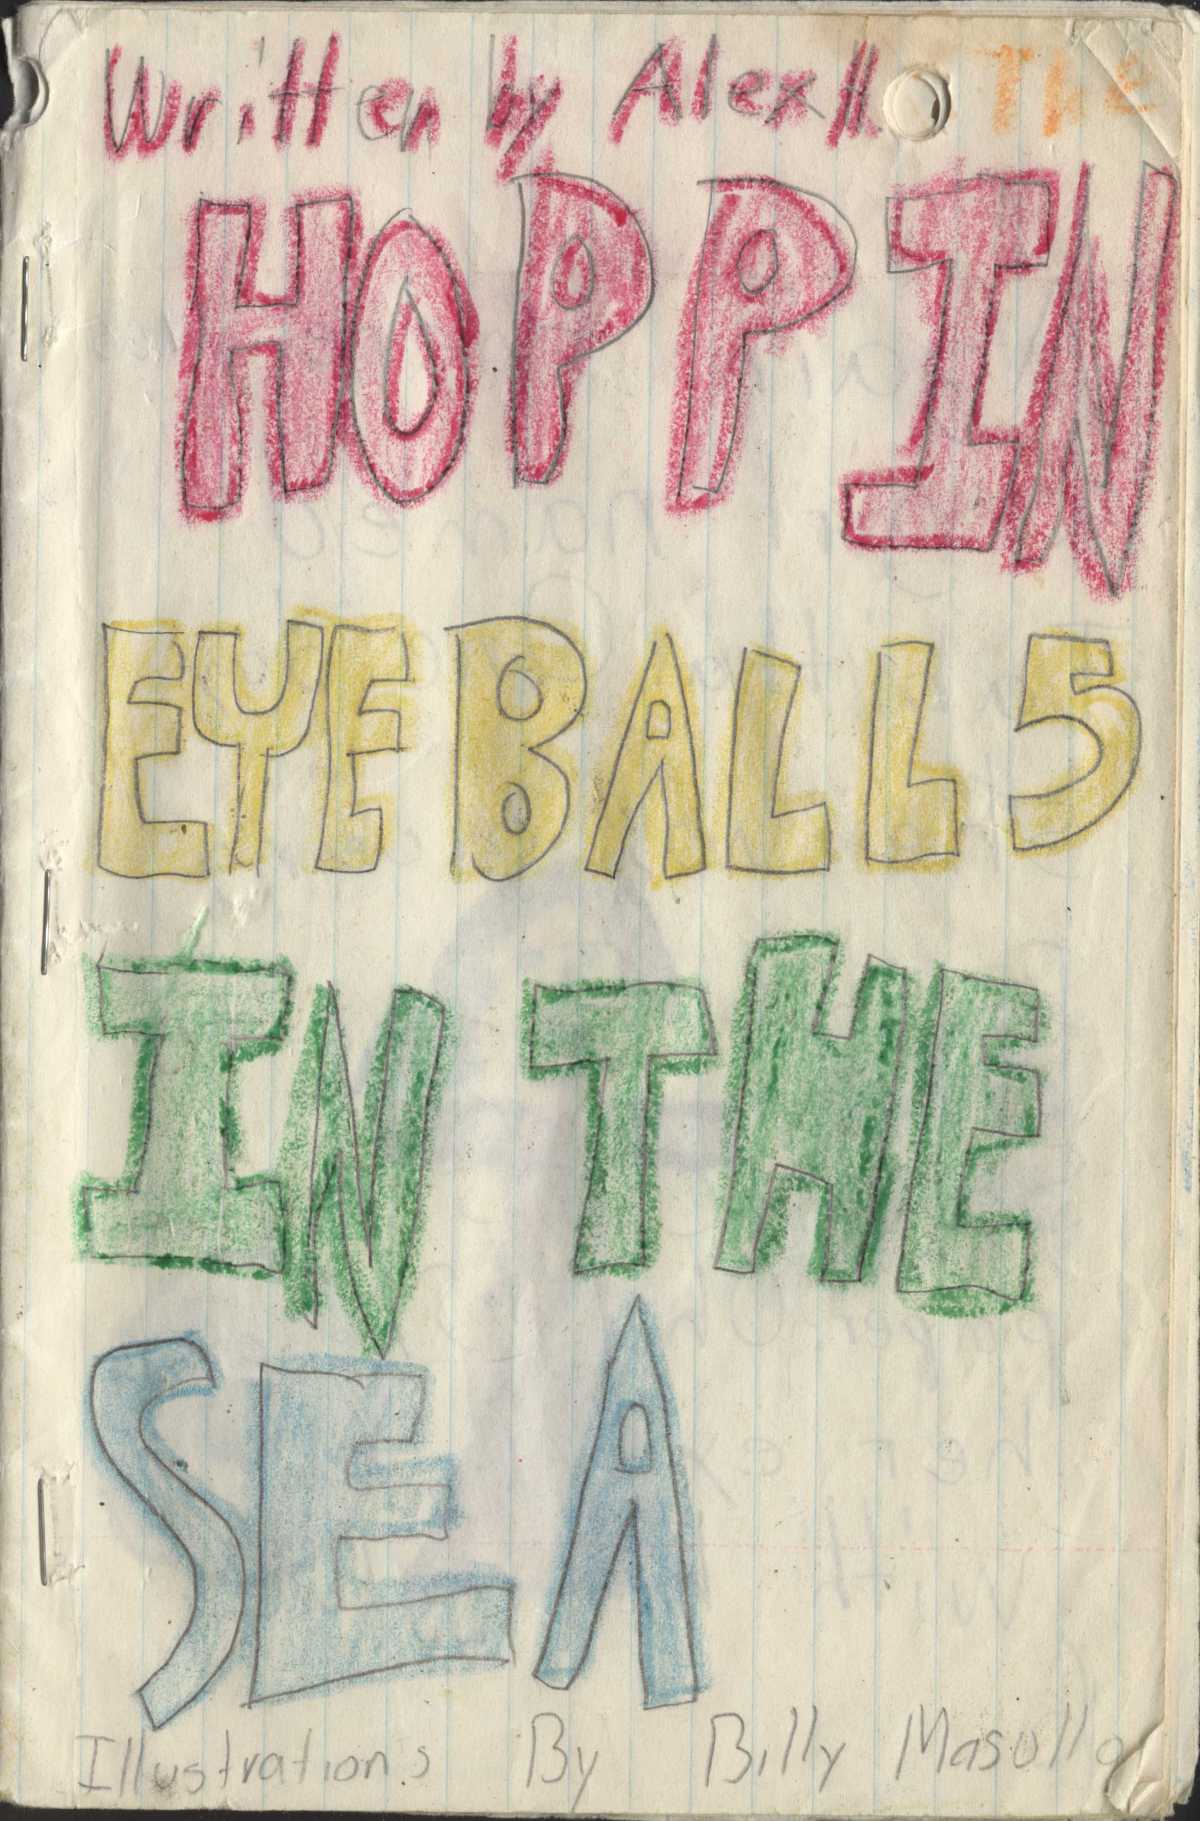 Written by Alex H. THE
HOPPIN
EYEBALLS
IN THE
SEA
Illustrations By Billy Masullo